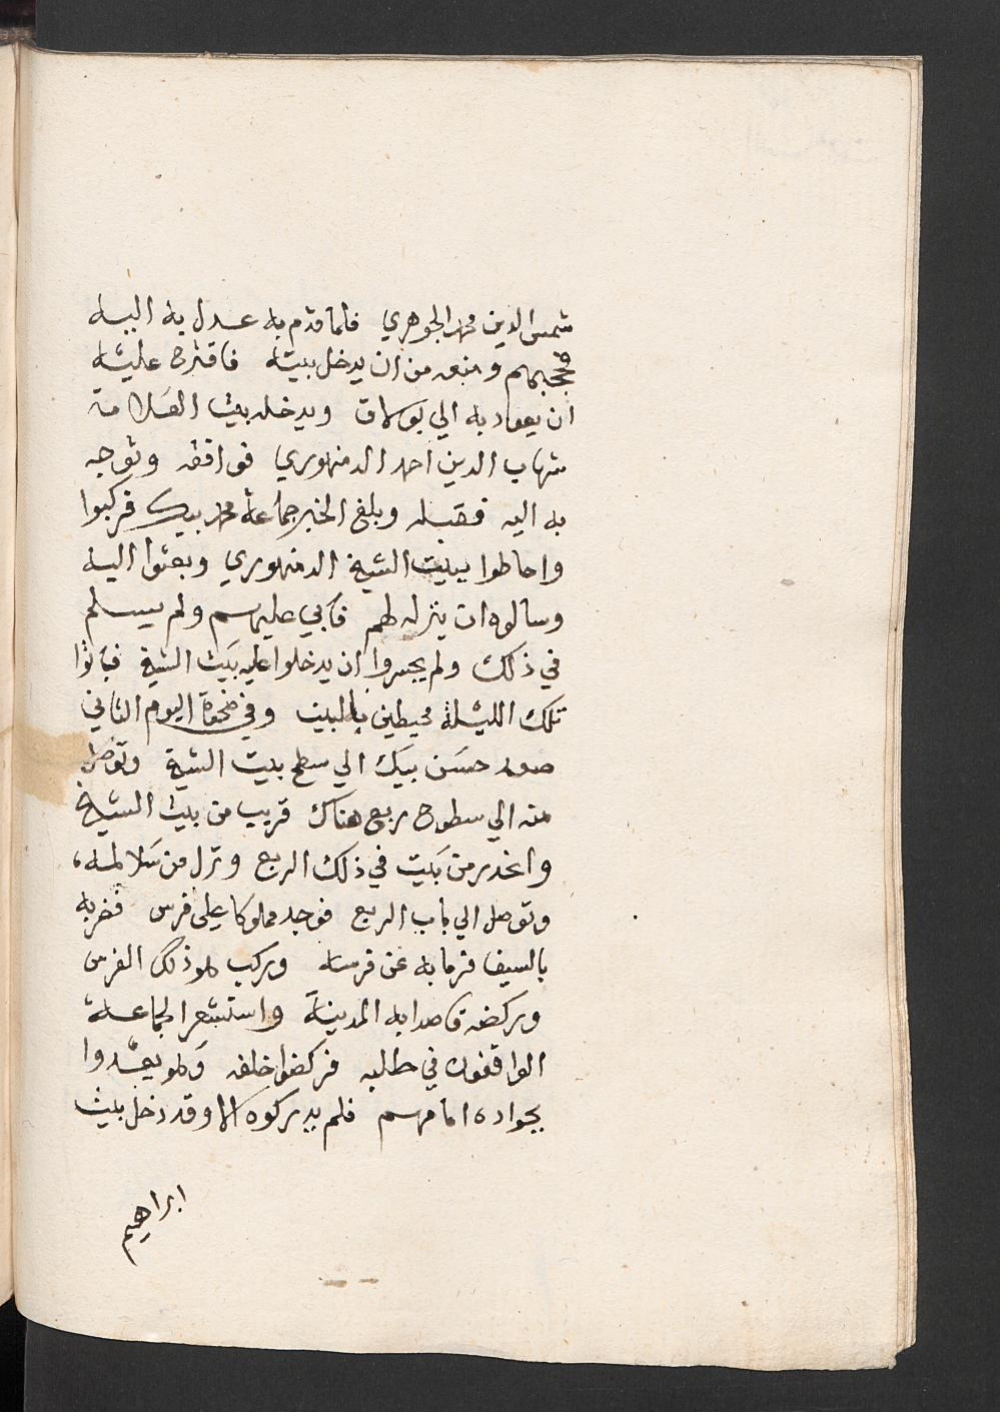 شمس الدين محمد الجوهري فلما قدم به عدل به اليه
فحجبهم ومنعه من ان يدخل بيته فاقترح عليه
ان يعود به الي بولاق ويدخله بيت العلامة
شهاب الدين احمد الدمنهوري فوافقه وتوجه
به اليه فقبله وبلغ الخبر جماعة محمد بيك فركبوا
واحاطوا ببيت الشيخ الدمنهوري وبعثوا اليه
وسالوه ان ينزله لهم فابي عليهم ولم يسلم
في ذلك ولم يجسروا ان يدخلوا عليه بيت الشيخ فباتوا
تلك الليلة محيطين بالبيت وفي ضحوة اليوم الثاني
صعد حسن بيك الي سطح بيت الشيخ وتوصل
منه الي سطوح ربع هناك قريب من بيت الشيخ
وانحدر من بيت في ذلك الربع ونزل من سلالمه
وتوصل الي باب الربع فوجد مملوكا علي فرس فضربه
بالسيف فرما به عن فرسه وركب هو ذلك الفرس
وركض قاصدا به المدينة واستشعر الجماعة
الواقفون في طلبه فركضوا خلفه وهو يعدوا
بجواده امامهم فلم يدركوه الا وقد دخل بيت
ابراهيم